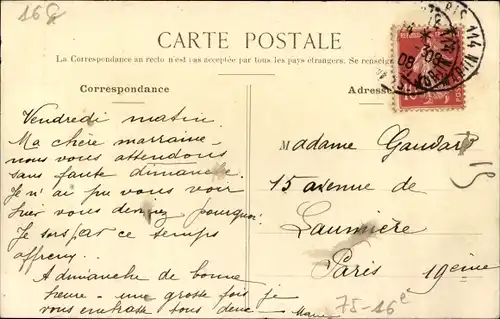 168
CARTE POSTALE
La Correspondance au recto n'est pas acceptée par tous les pays étrangers. Se renseigner
Correspondance
Adresse
Vendredi matin
Ma chère marraine
nous vous attendons
sans faute dimanche.
Je n'ai pu vous voir
hier vous devinez pourquoi.
Je sors par ce temps
affreux
A dimanche de bonne
heure - une grosse fois je
vous embrasse tous deux
Madame
15 avenue de
Laumière
Paris 19ème
75-16e